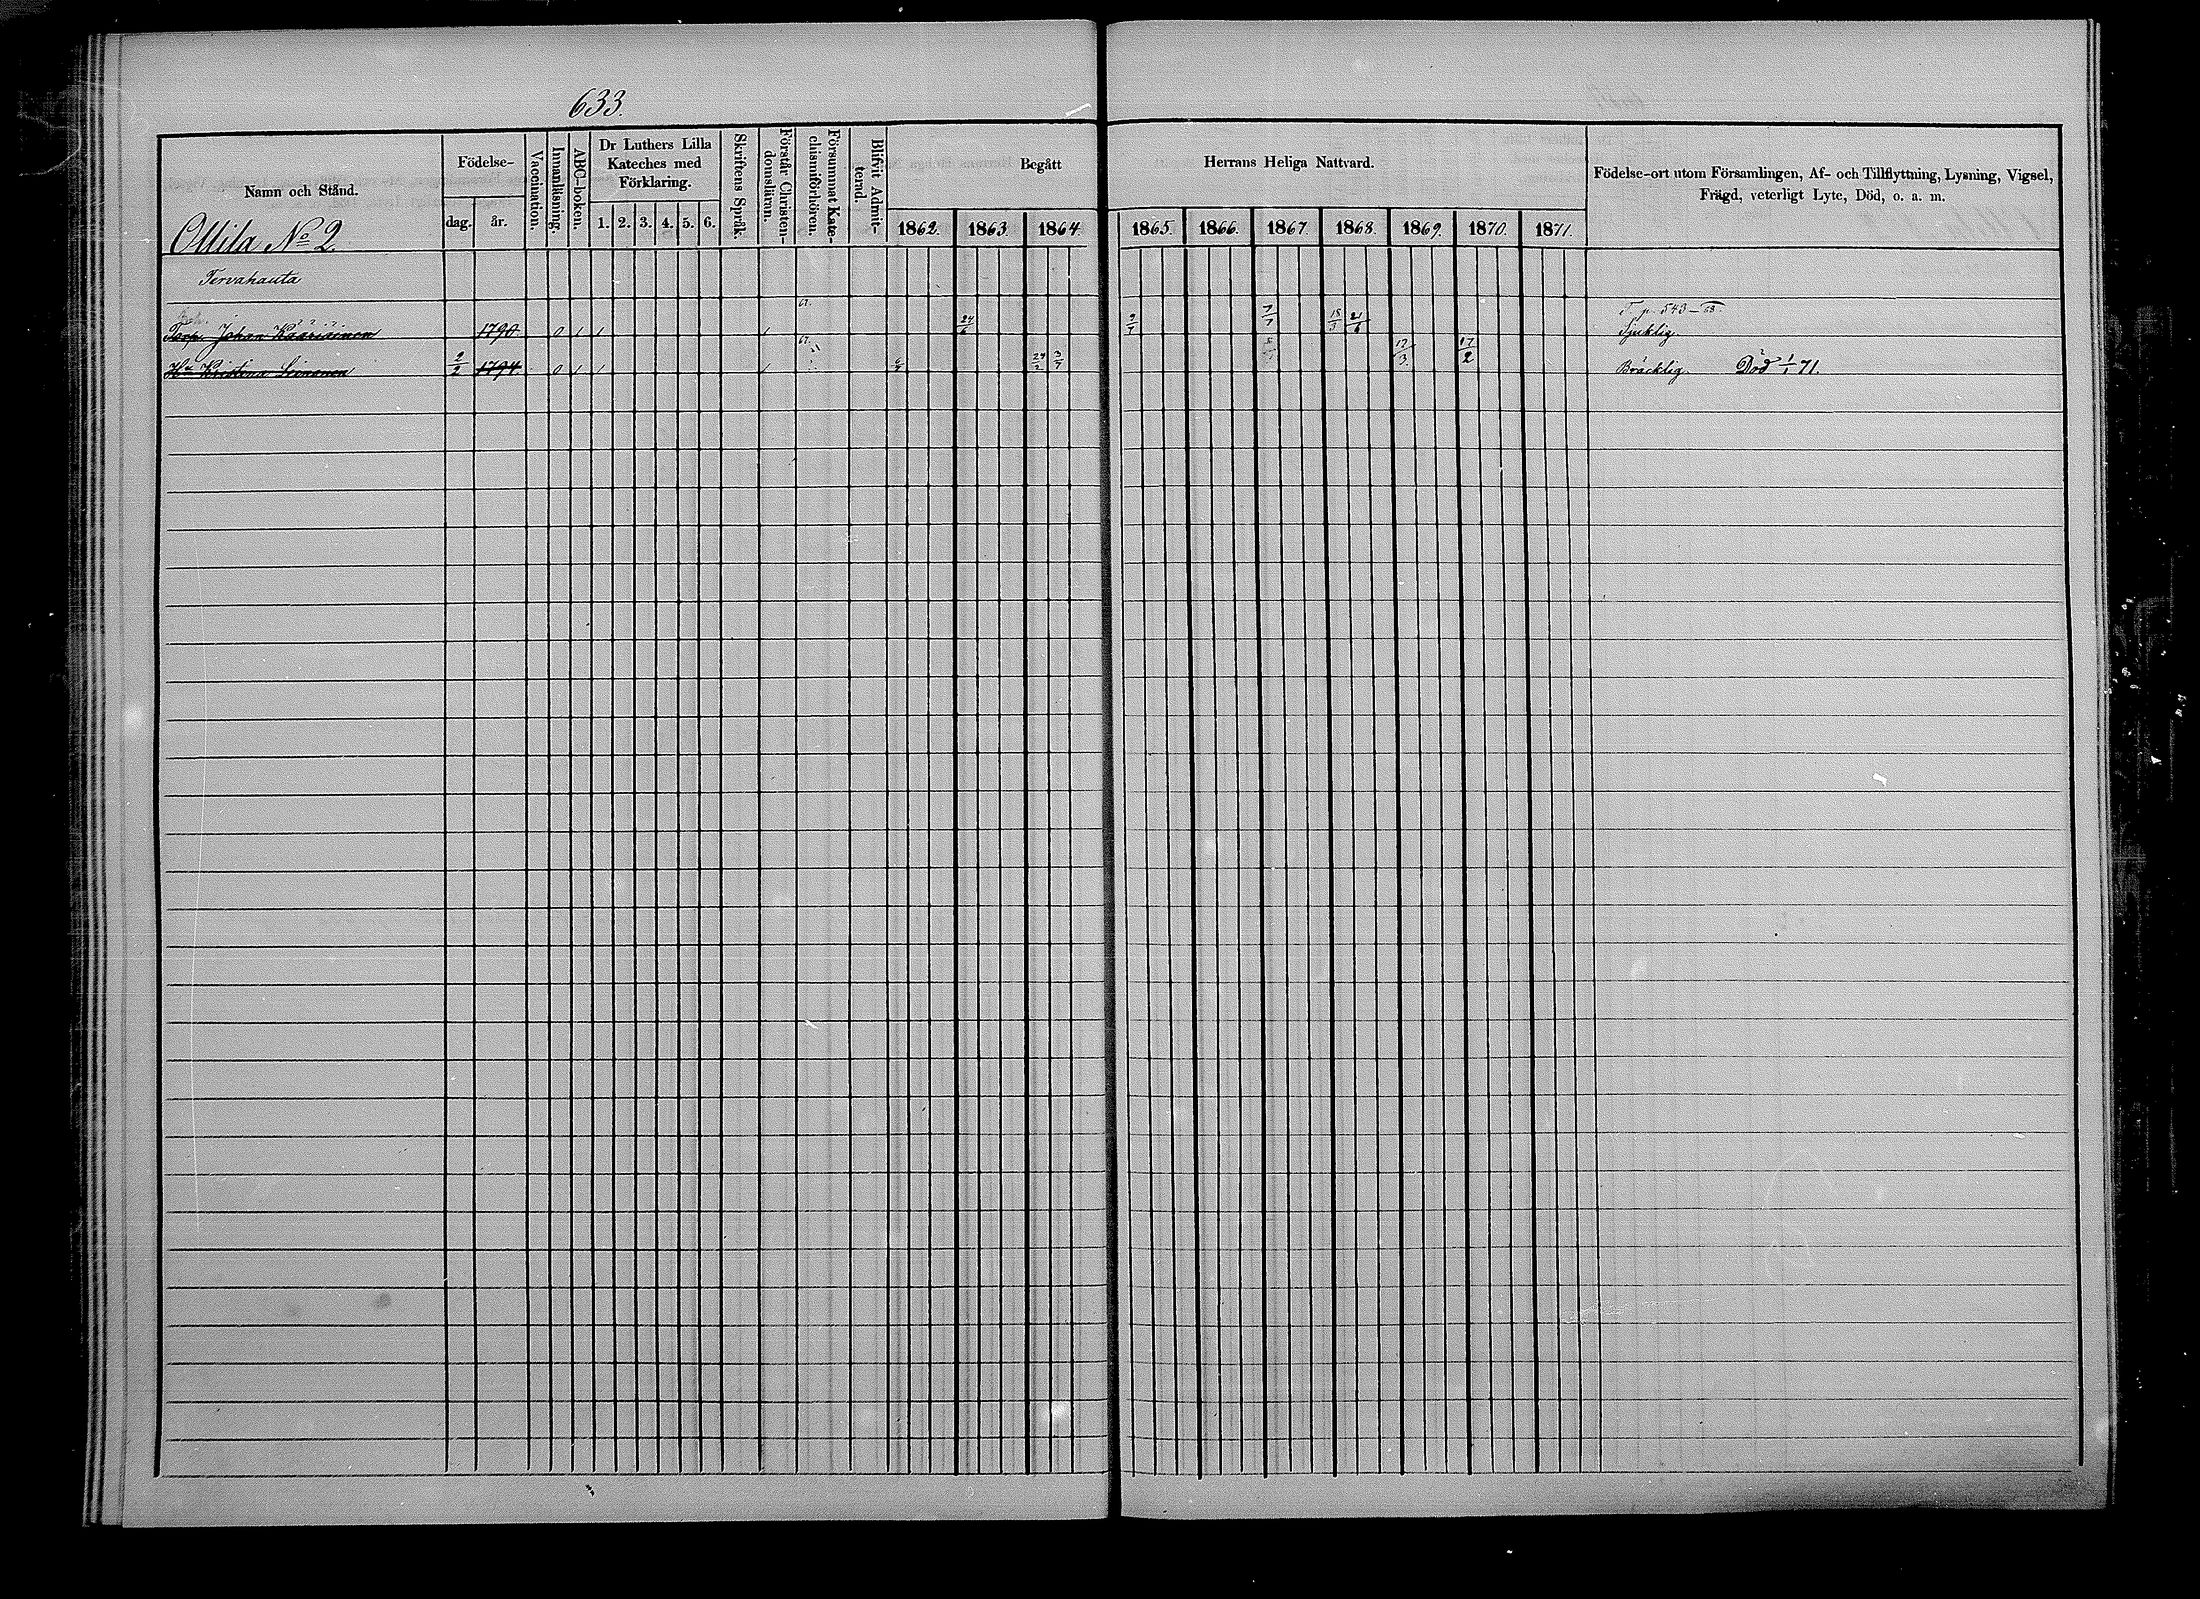 633.
Namn och Stånd.
Födelse-
dag. år.
Vaccination.
Innanläsning.
ABC-boken.
Dr Luthers Lilla
Kateches med
Förklaring.
1. 2. 3. 4. 5. 6.
Skriftens Språk.
Förstår Christen-
domsläran.
Försummat Kate-
chismiförhören.
Blifvit Admit-
terad.
Begått
Herrans Heliga Nattvard.
1862. 1863. 1864. 1865. 1866. 1867. 1868. 1869. 1870. 1871.
Födelse-ort utom Församlingen, Af- och Tillflyttning, Lysning, Vigsel,
Frägd, veterligt Lyte, Död, o. a. m.
Ollila No 2.
Tervahauta
Torp. Johan Kääriäinen 1790. 0 1 1 1 67. 24/6 9/7 7/7 18/3 21/6 T. p. 543
Sjuklig.
Hu Kristina Leinonen 2/2 1794. 0 1 1 1 67. 24/2 3/7 12/3 17/2 Bräcklig. Död 1/1 71.